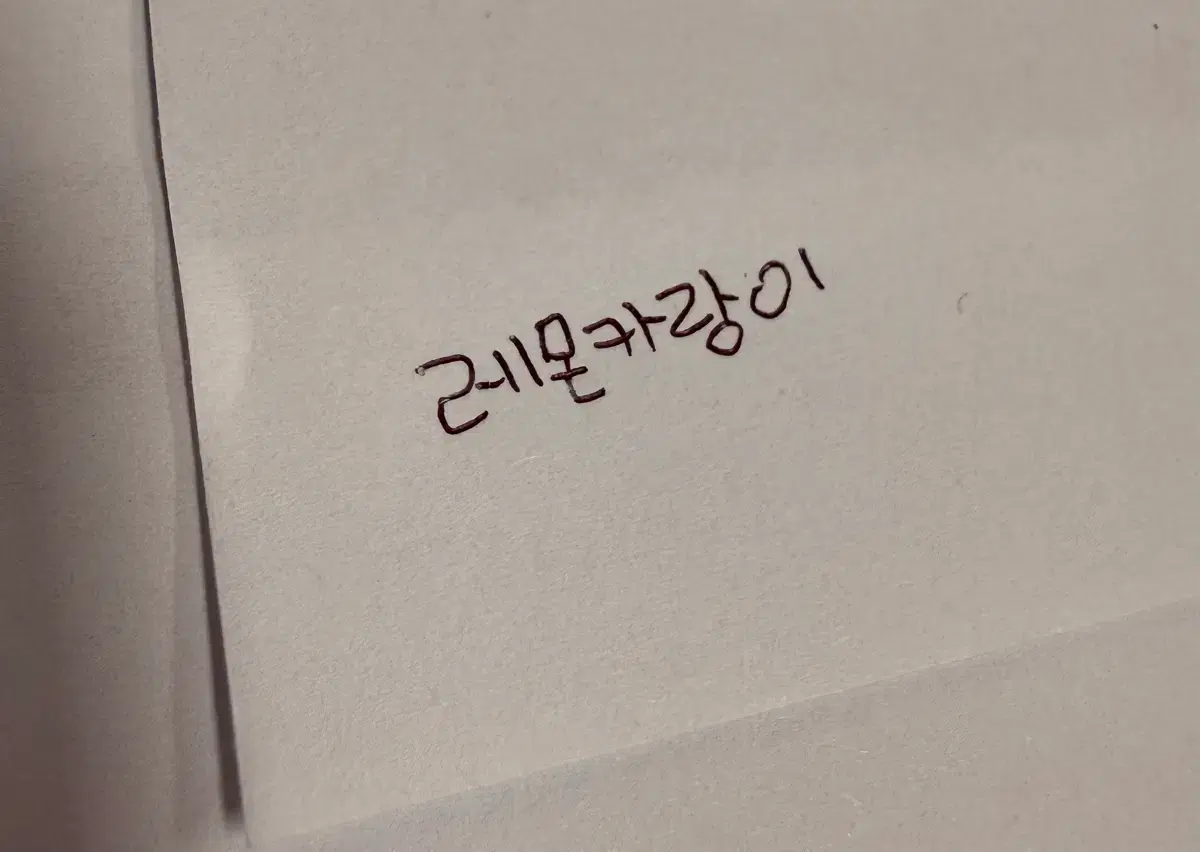 레몬카랑이